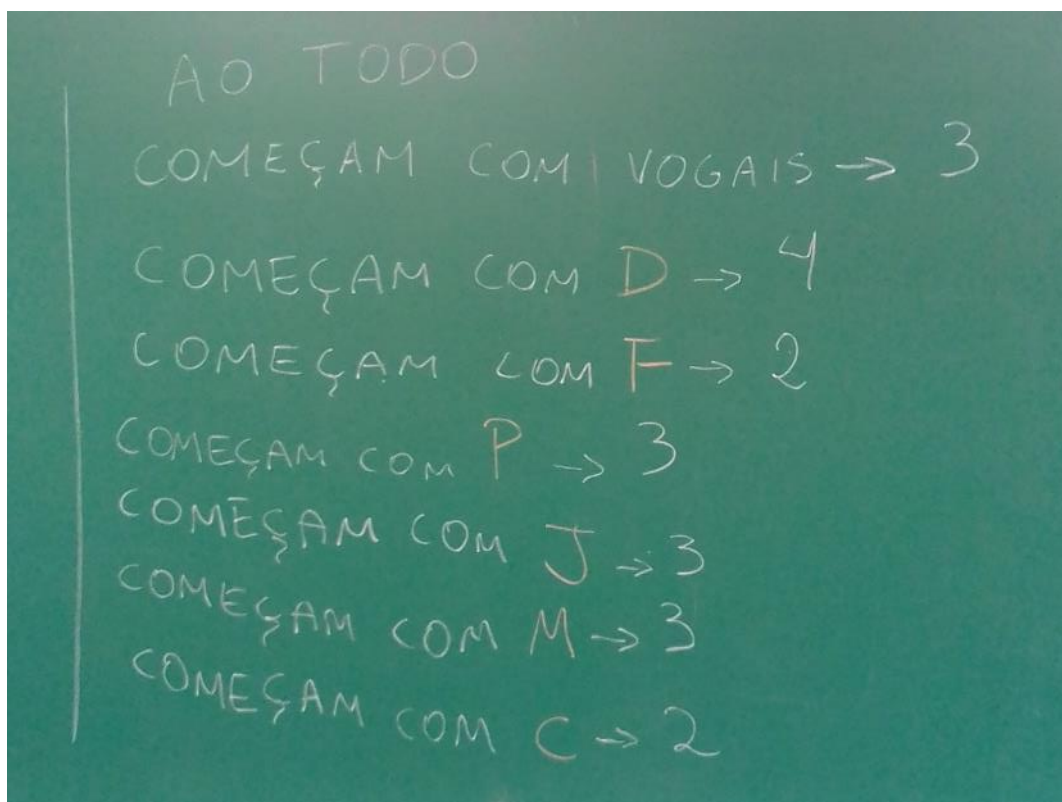 AO TODO
COMEÇAM COM VOGAIS → 3
COMEÇAM COM D → 4
COMEÇAM COM F → 2
COMEÇAM COM P → 3
COMEÇAM COM J → 3
COMEÇAM COM M → 3
COMEÇAM COM C → 2